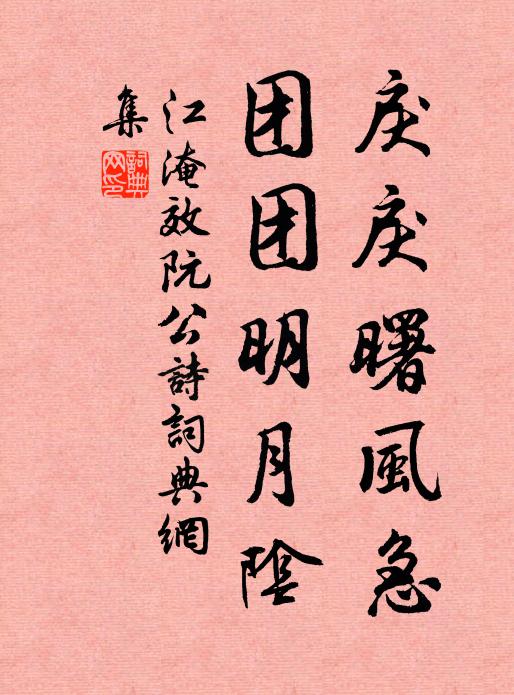 戾戾曙風急
团团明月陰
江淹效阮公詩詞典網
集
詞典网印